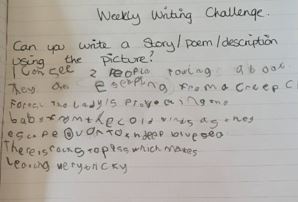 Weekly Writing Challenge.
Can you write a Story/poem/description
using the picture?
I can see 2 People rowing a boat.
They are escaping from a creep C
Forest the lady is protecting the
babe from the cold winds as they
escape on to the deep blue sea
There is rocks to pass which makes
leaving very tricky